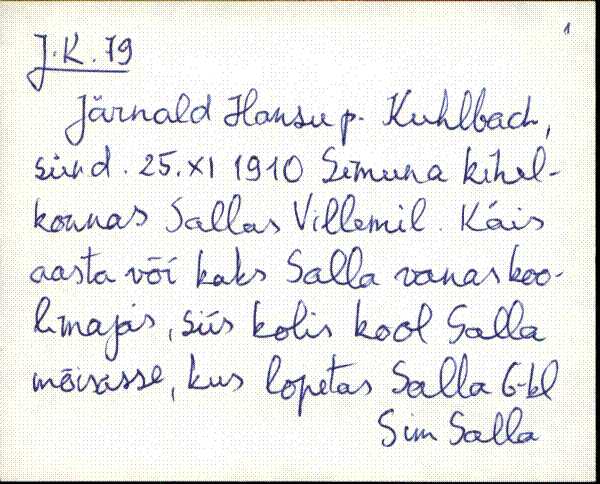 1
J.K. 79
Järnald Hansu p. Kuhlbach,
sünd. 25.XI 1910 Simuna kihel-
konnas Sallas Villemil. Käis
aasta või kaks Salla vanas koo-
limajas, siis kolis kool Salla
mõisasse, kus lopetas Salla 6-kl
Sim Salla